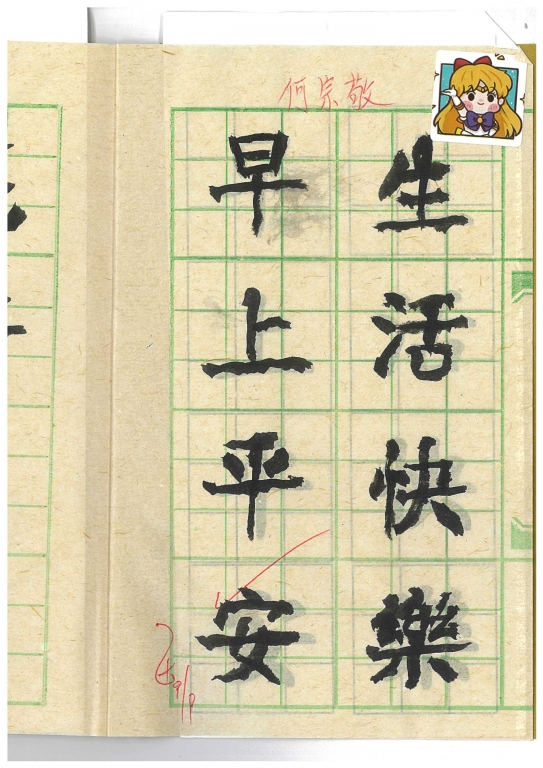 何宗敬
生活快樂
早上平安